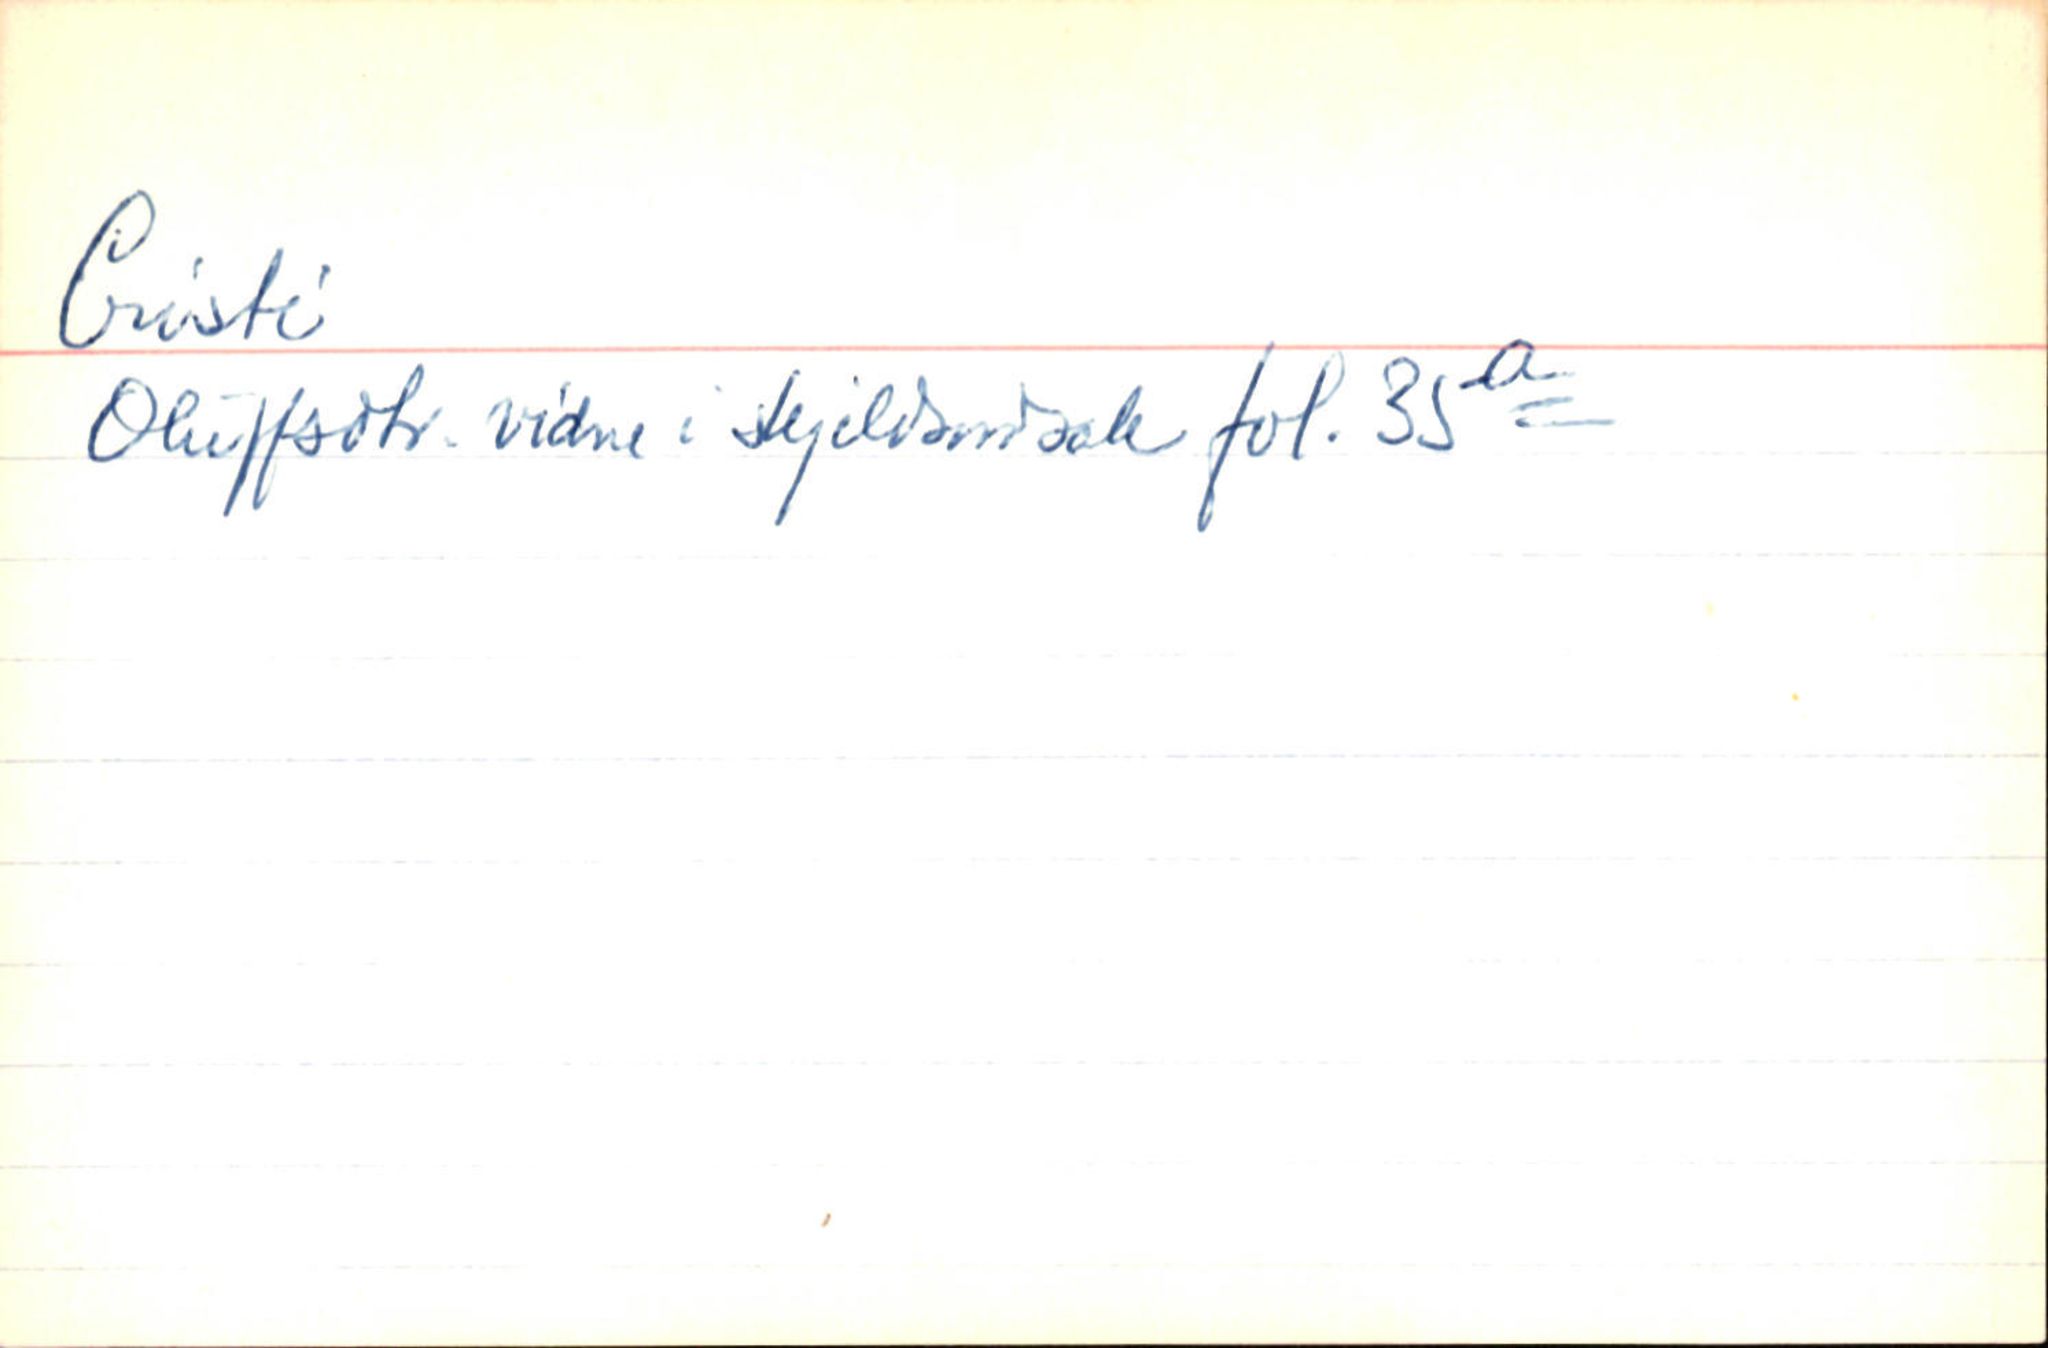 Cristi
Oluffsdtr. vidne i skjeldsordsak fol. 35a